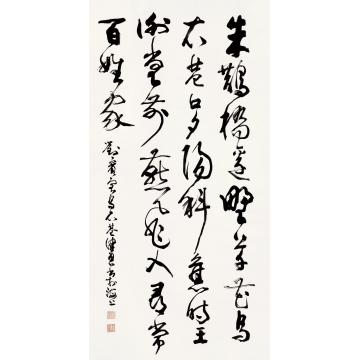 朱鵲橋邊野草花烏
衣巷口夕陽斜舊時王
謝堂前燕飛入尋常
百姓家
劉賓客烏衣巷 書於海上